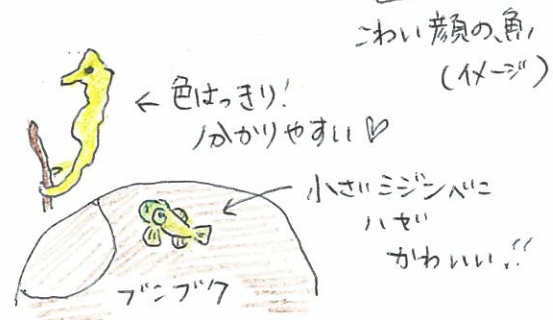 こわい顔の魚
(イメージ)
← 色はっきり!
分かりやすい♡
小さいミジンベニ
ハゼ
かわいい!!
ブンブク